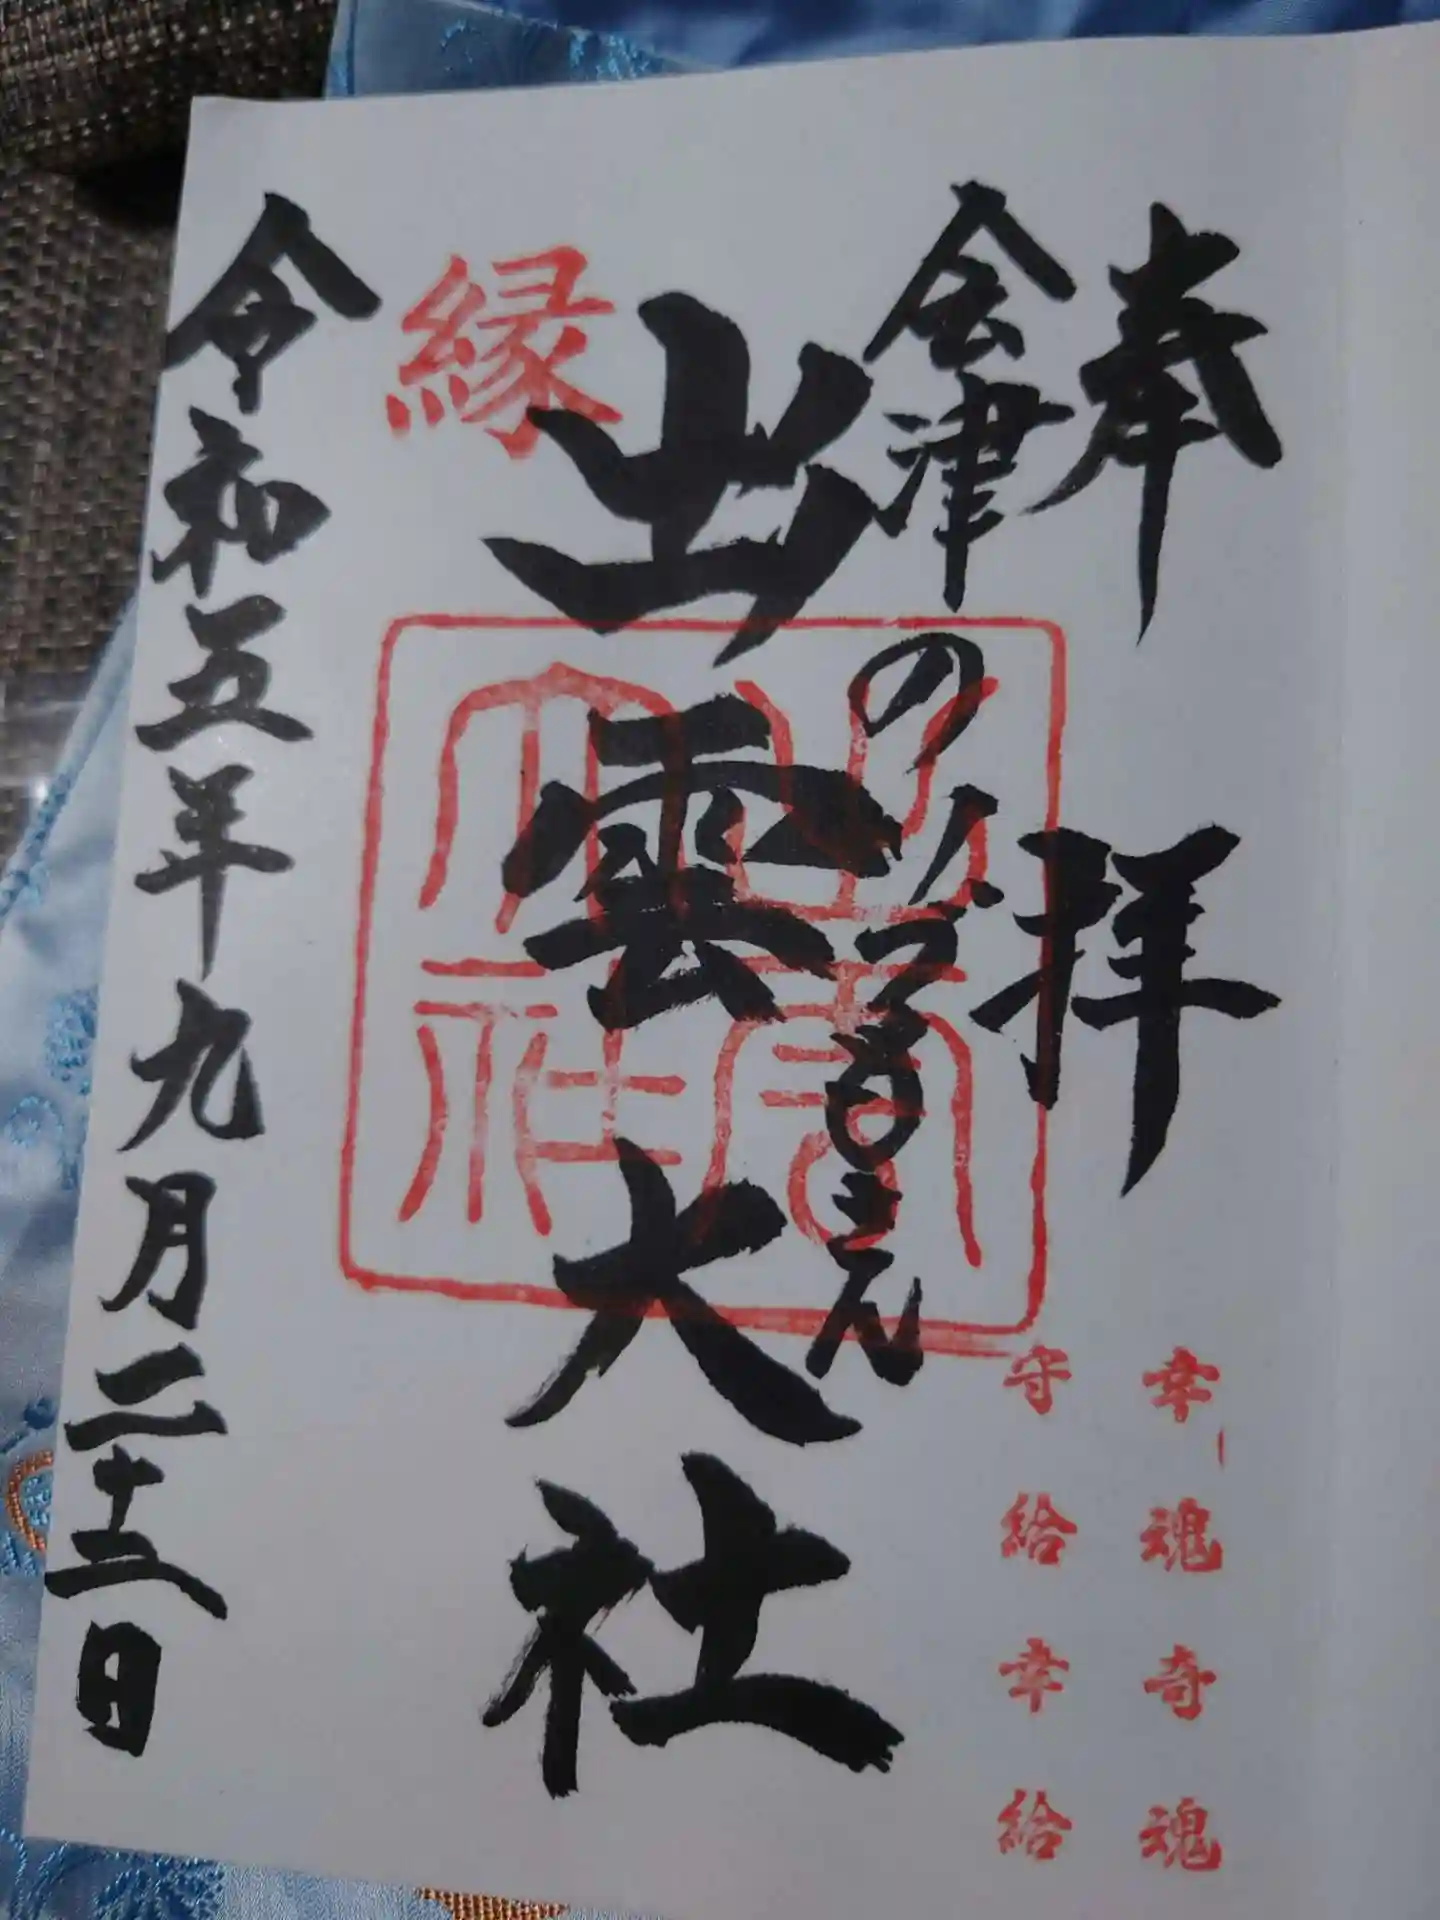 奉拝
会津のイズモさん
出雲大社
縁
出雲
大社
令和五年九月二十三日
幸魂奇魂
守給幸給